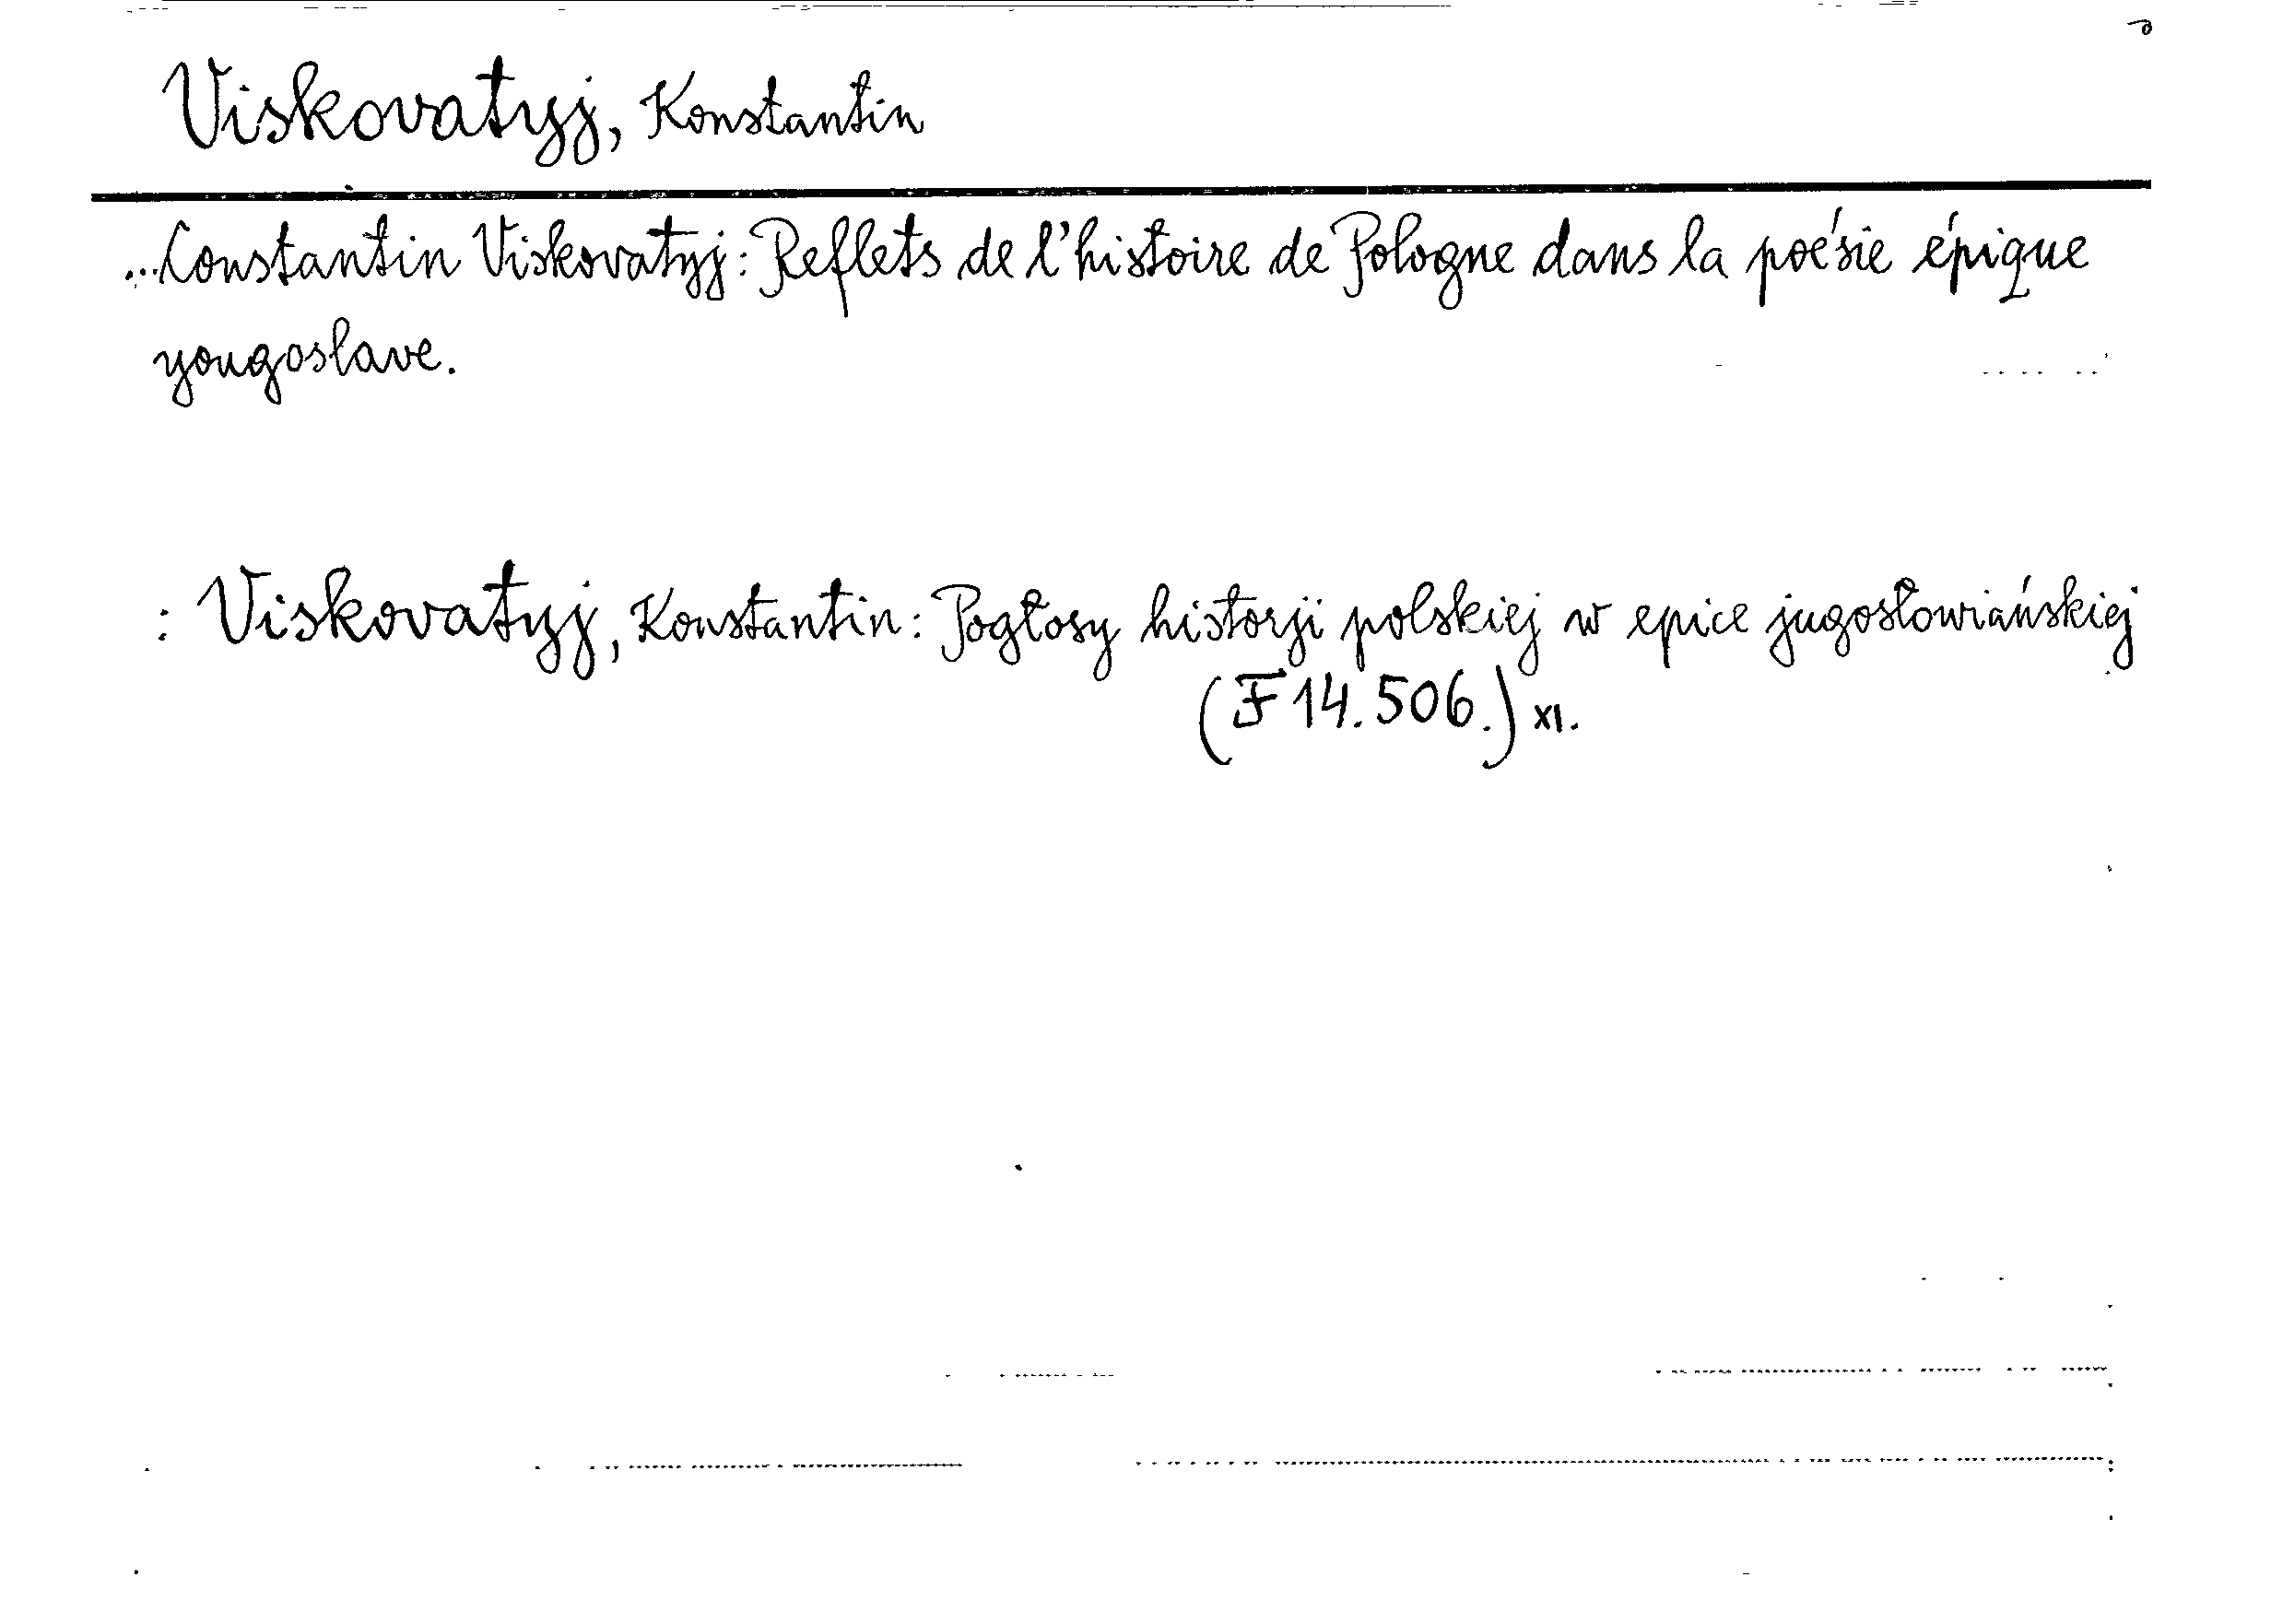 Viskovatyj, Konstantin
...Constantin Viskovatyj: Reflets de l'histoire de Pologne dans la poésie épique
yougoslave.
: Viskovatyj, Konstantin: Pogłosy historji polskiej w epice jugosłowiańskiej
(F 14.506.) XI.